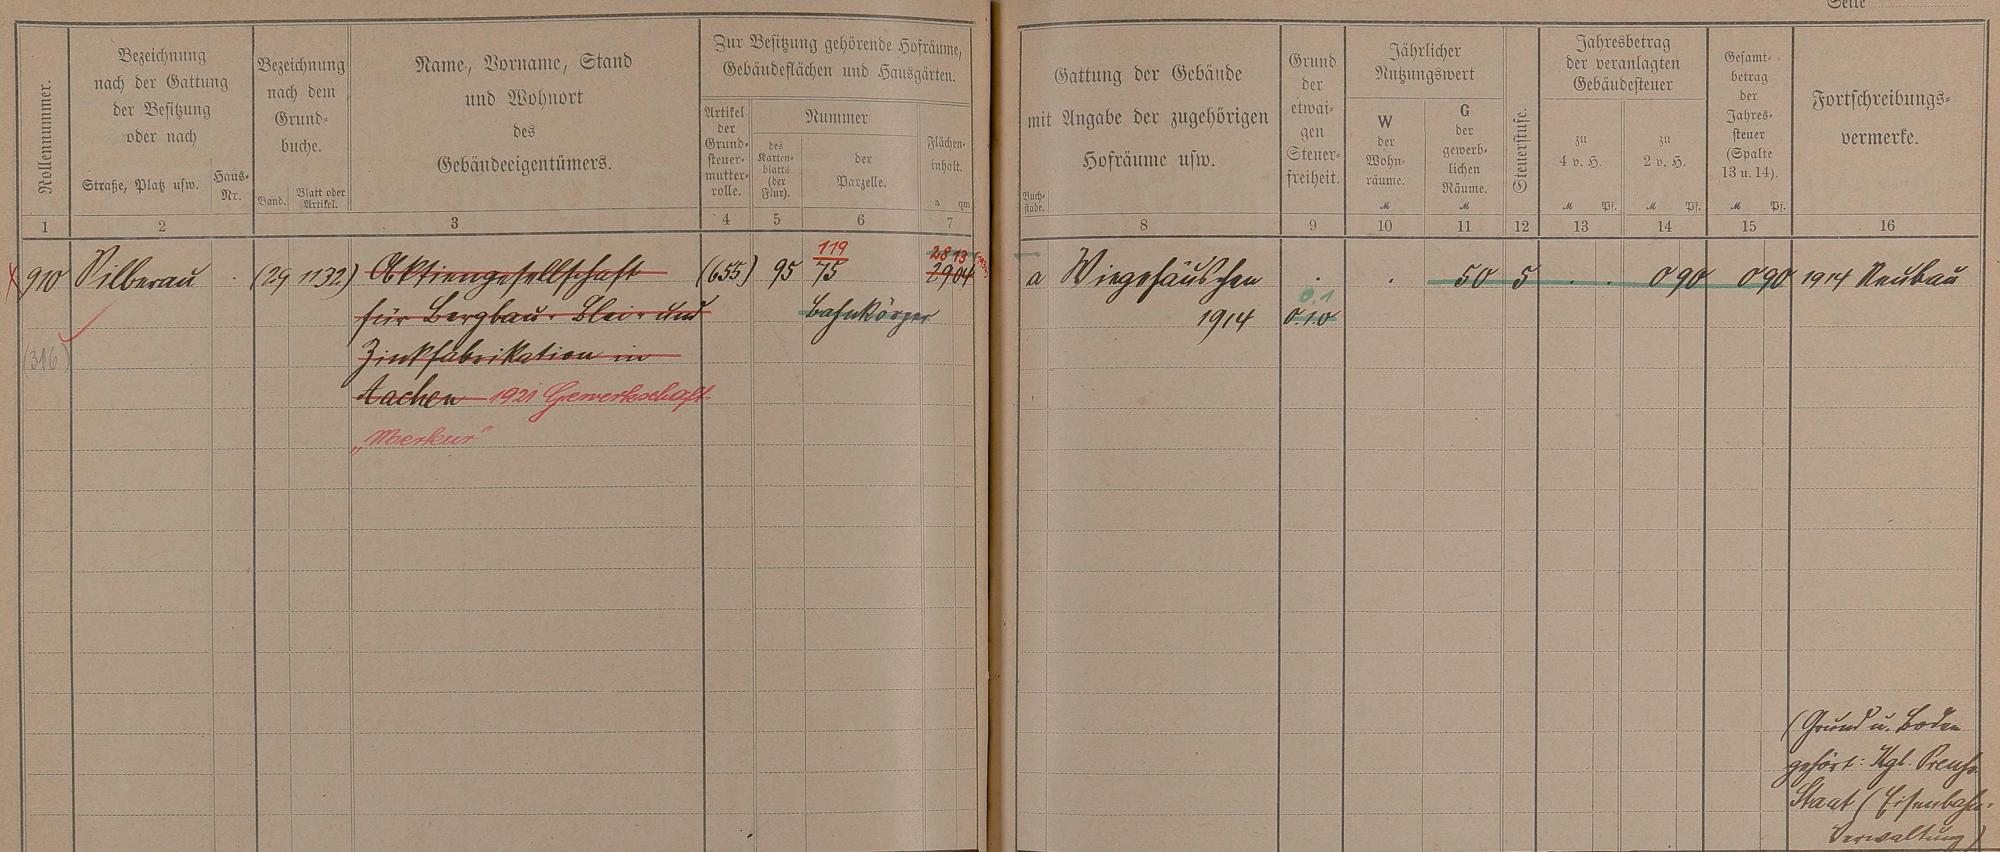 Seite
Rollennummer.
Bezeichnung
nach der Gattung
der Besitzung
oder nach
Straße, Platz usw.
Haus-
Nr.
Bezeichnung
nach dem
Grund-
buche.
Band.
Blatt oder
Artikel.
Name, Vorname, Stand
und Wohnort
des
Gebäudeeigentümers.
Zur Besitzung gehörende Hofräume,
Gebäudeflächen und Hausgärten.
Artikel
der
Grund-
steuer-
mutter-
rolle.
Nummer
des
Karten-
blatts
(der
Flur).
der
Parzelle.
Flächen-
inhalt.
a qm
1 2 3 4 5 6 7
Buch-
stabe.
Gattung der Gebäude
mit Angabe der zugehörigen
Hofräume usw.
Grund
der
etwai-
gen
Steuer-
freiheit.
Jährlicher
Nutzungswert
W
der
Wohn-
räume.
M
G
der
gewerb-
lichen
Räume.
M
Steuerstufe.
Jahresbetrag
der veranlagten
Gebäudesteuer
zu
4 v. H.
M Pf.
zu
2 v. H.
M Pf.
Gesamt-
betrag
der
Jahres-
steuer
(Spalte
13 u. 14).
M Pf.
Fortschreibungs-
vermerke.
8 9 10 11 12 13 14 15 16
119
28 13
910 Silberau . (29 1132) Aktiengesellschaft (655) 95 75 29 04
für Bergbau- Blei- und Bahnkörper
(316) Zinkfabrikation in
Aachen 1921 Gewerkschaft
„Merkur"
a Wiegehäuschen . . 50 5 . . 0 90 0 90 1914 Neubau
0.1
1914 0.10
(Grund u. Boden
gehört: Kgl. Preuß.
Staat (Eisenbahn-
Verwaltung)